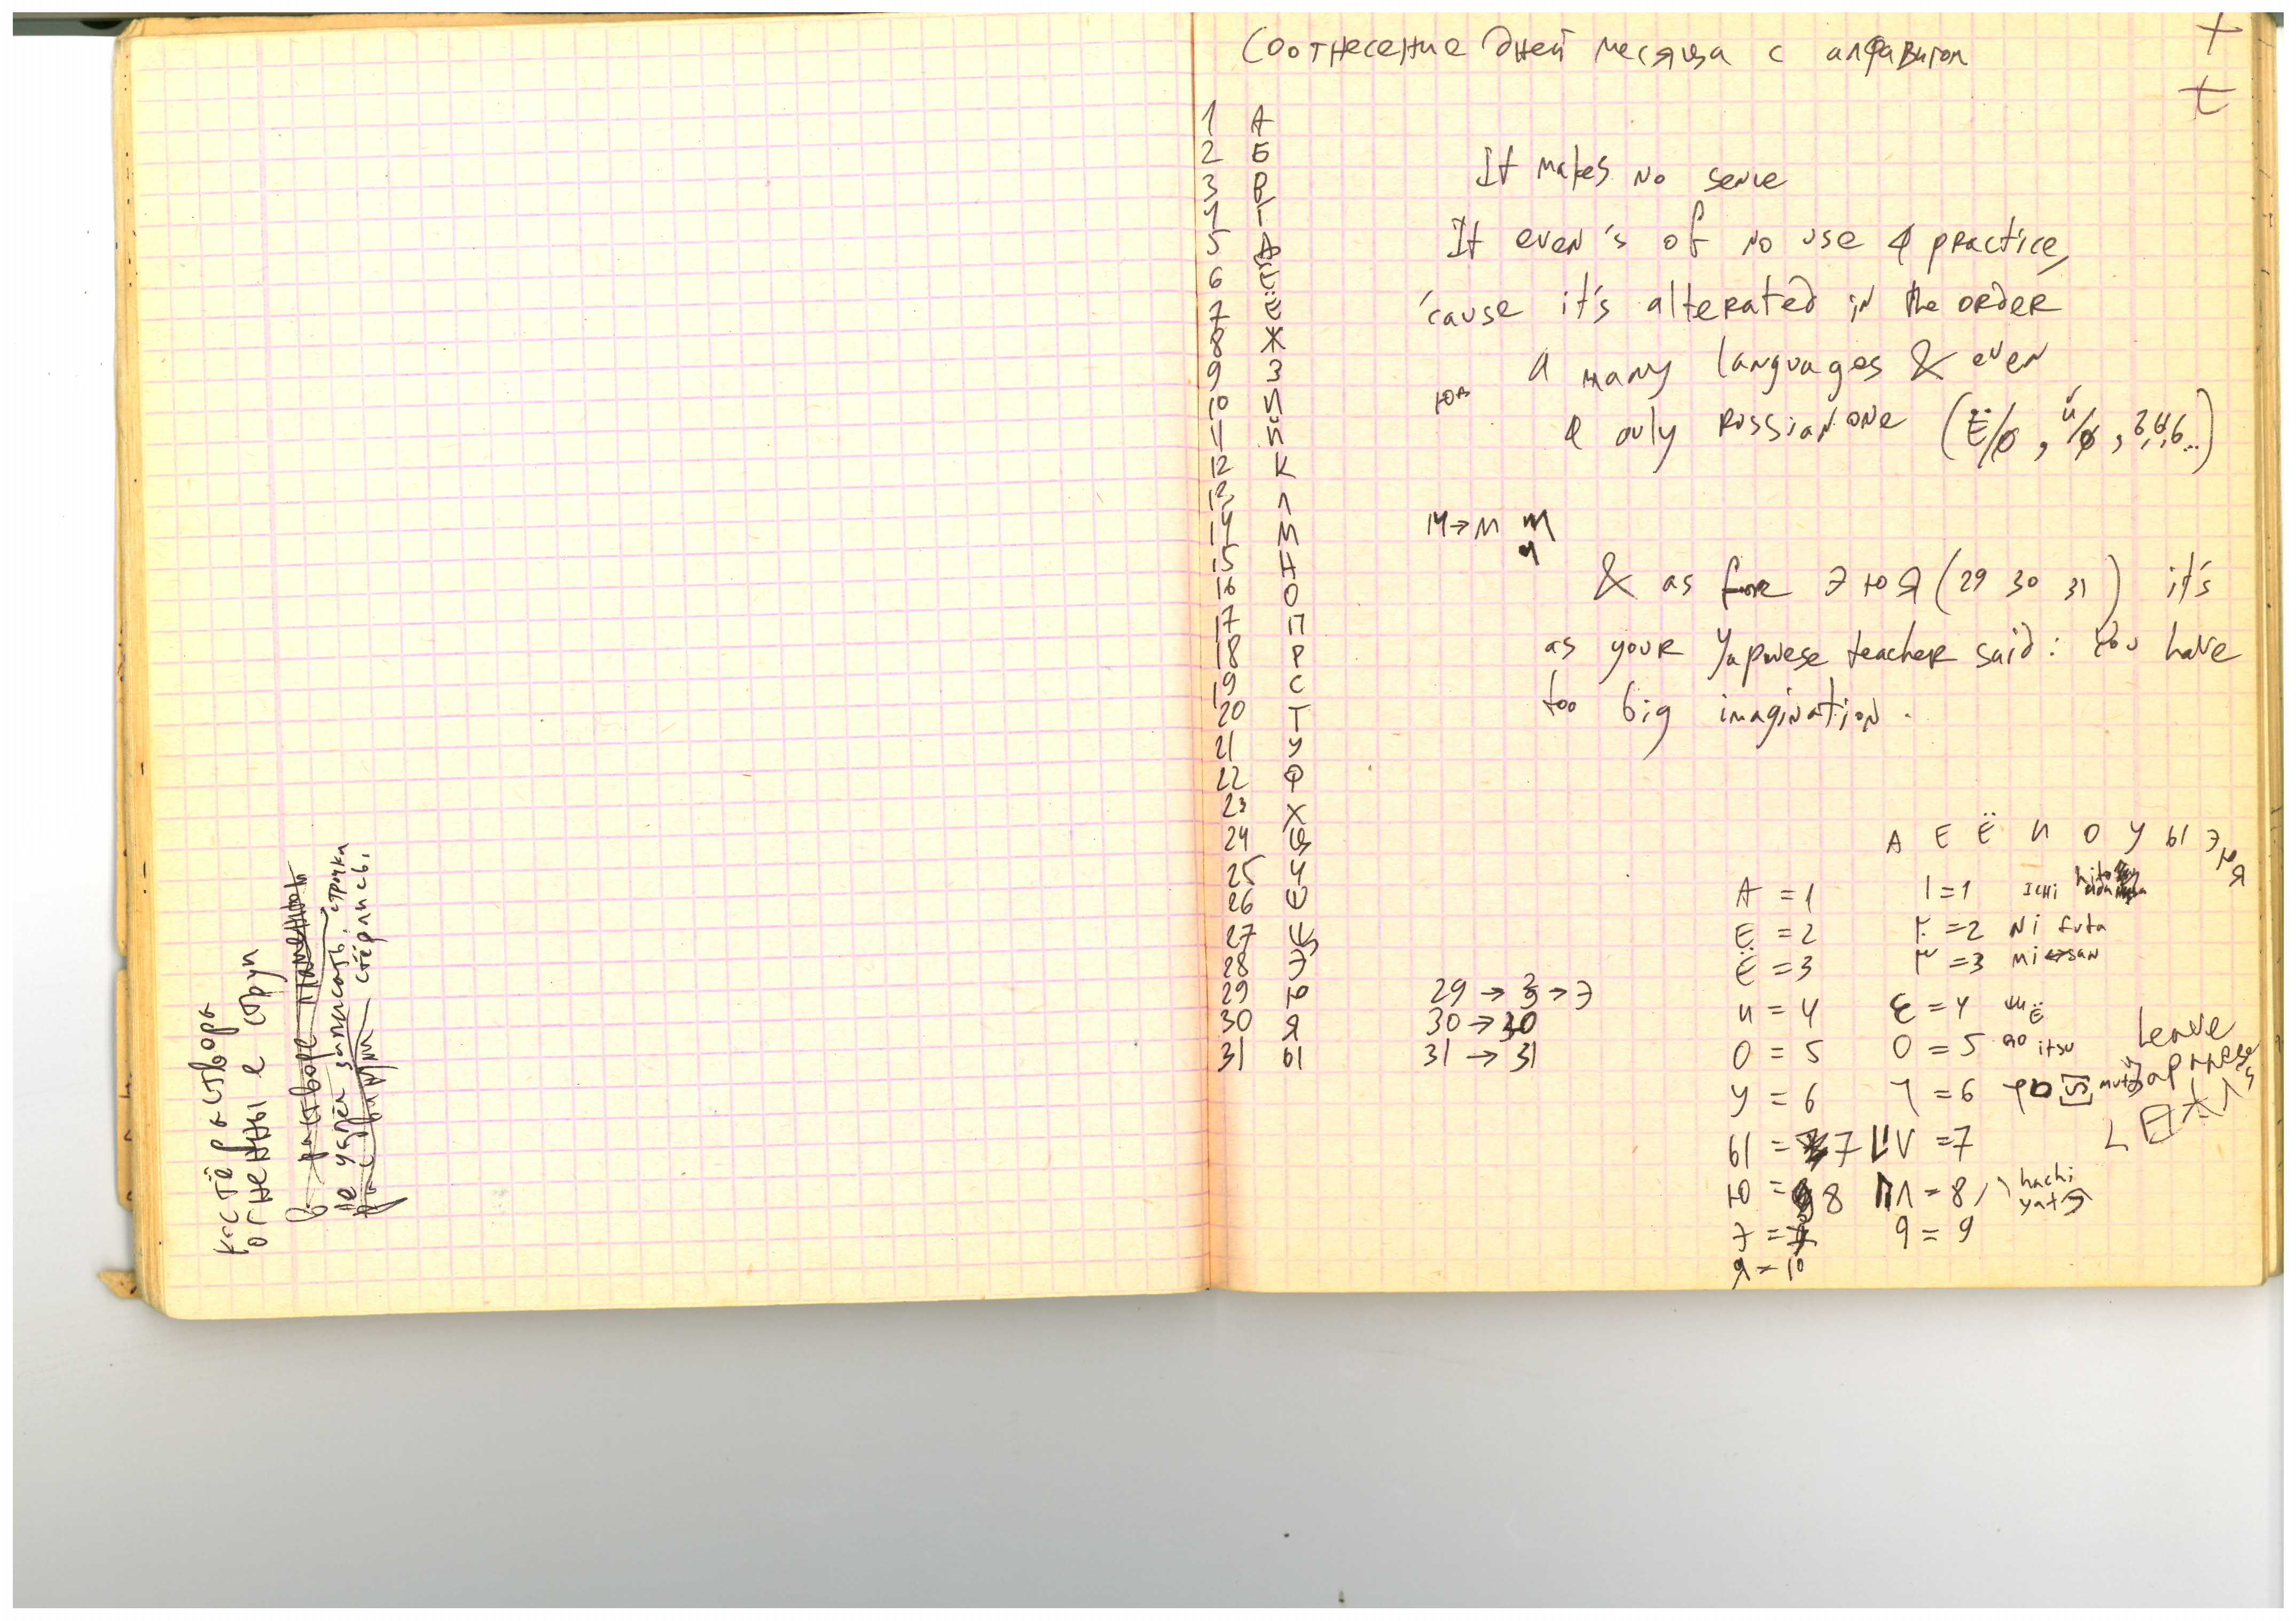 костёр растворы
огненные струи
в растворе
не успел записать, строчка
стёрлись,
Соотнесение дней месяца с алфавитом
+
t
1 А
2 Б
3 В
4 Г
5 Д
6 Е
7 Ё
8 Ж
9 З
10 И
11 Й
12 К
13 Л
14 М
15 Н
16 О
17 П
18 Р
19 С
20 Т
21 У
22 Ф
23 Х
24 Ц
25 Ч
26 Ш
27 Щ
28 Э
29 Ю
30 Я
31 Ы
It makes no sence
It even's of no use practice,
'cause it's alterated in the order
many languages & even
only Russian one (Ё/ø, й/ø, ...)
14→М
& as for Э Ю Я (29 30 31) it's
as your Yapnese teacher said: You have
too big imagination.
29 → 3 → Э
30 → 30
31 → 31
А Е Ё И О У Ы Э Ю Я
А = 1
Е = 2
Ё = 3
И = 4
О = 5
У = 6
Ы = 7
Ю = 8
Э =
Я = 10
1 = 1 ichi
= 2 Ni futa
= 3 mi ↔ san
= 4
O = 5 go itsu
= 6
= 7
= 8 hachi
9 = 9
Leave